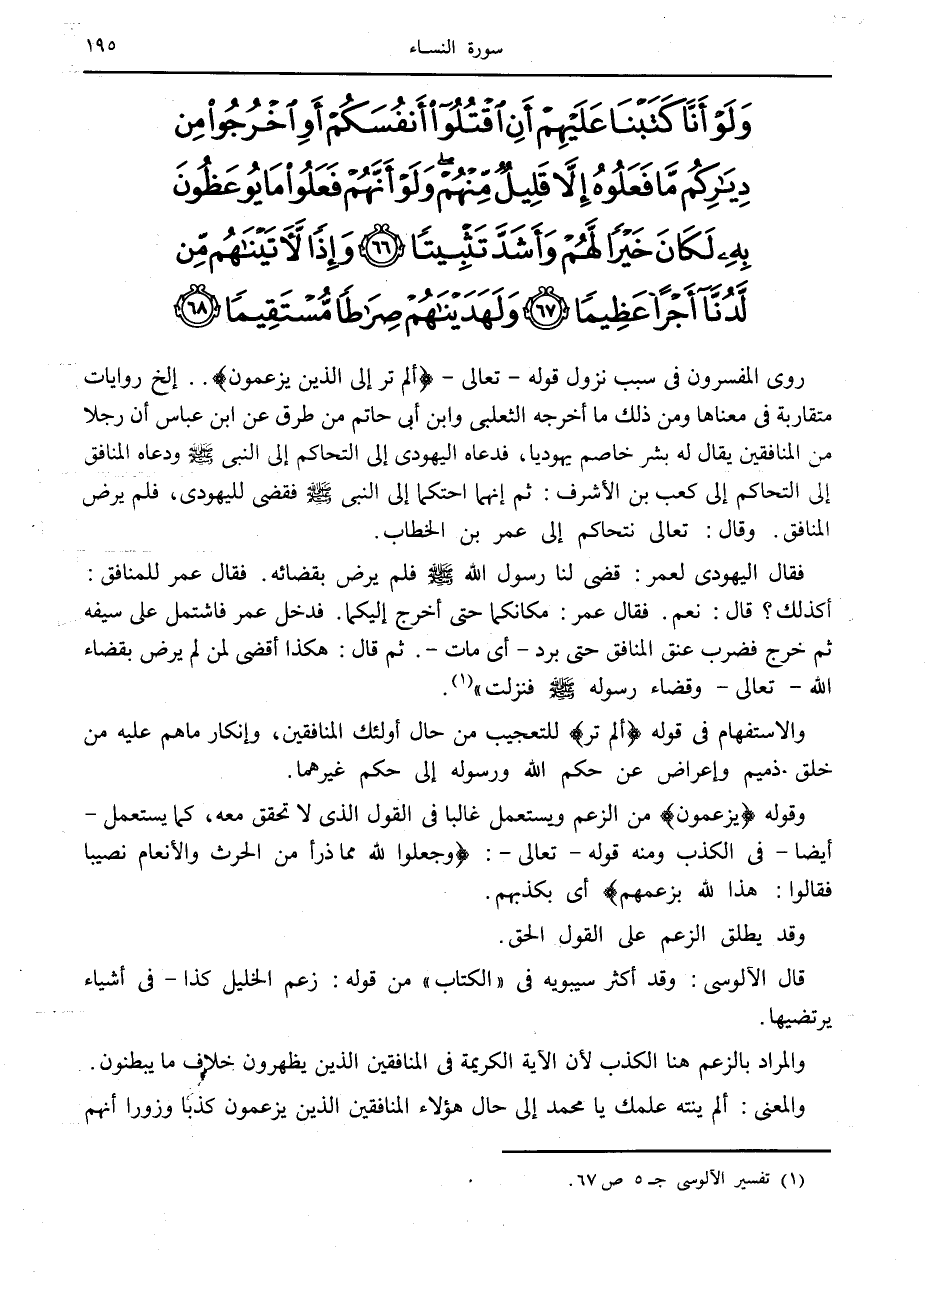 سورة النساء ١٩٥
وَلَوْ أَنَّا كَتَبْنَا عَلَيْهِمْ أَنِ ٱقْتُلُوٓا۟ أَنفُسَكُمْ أَوِ ٱخْرُجُوا۟ مِن
دِيَٰرِكُم مَّا فَعَلُوهُ إِلَّا قَلِيلٌ مِّنْهُمْ ۖ وَلَوْ أَنَّهُمْ فَعَلُوا۟ مَا يُوعَظُونَ
بِهِۦ لَكَانَ خَيْرًا لَّهُمْ وَأَشَدَّ تَثْبِيتًا ﴿٦٦﴾ وَإِذًا لَّءَاتَيْنَٰهُم مِّن
لَّدُنَّآ أَجْرًا عَظِيمًا ﴿٦٧﴾ وَلَهَدَيْنَٰهُمْ صِرَٰطًا مُّسْتَقِيمًا ﴿٦٨﴾
روى المفسرون فى سبب نزول قوله - تعالى - ﴿ألم تر إلى الذين يزعمون﴾ . . إلخ روايات
متقاربة فى معناها ومن ذلك ما أخرجه الثعلبى وابن أبى حاتم من طرق عن ابن عباس أن رجلا
من المنافقين يقال له بشر خاصم يهوديا، فدعاه اليهودى إلى التحاكم إلى النبى ﷺ ودعاه المنافق
إلى التحاكم إلى كعب بن الأشرف : ثم إنهما احتكما إلى النبى ﷺ فقضى لليهودى، فلم يرض
المنافق. وقال: تعالى نتحاكم إلى عمر بن الخطاب.
فقال اليهودى لعمر: قضى لنا رسول الله ﷺ فلم يرض بقضائه. فقال عمر للمنافق :
أكذلك؟ قال: نعم. فقال عمر: مكانكما حتى أخرج إليكما. فدخل عمر فاشتمل على سيفه
ثم خرج فضرب عنق المنافق حتى برد - أى مات -. ثم قال: هكذا أقضى لمن لم يرض بقضاء
الله - تعالى - وقضاء رسوله ﷺ فنزلت»(١).
والاستفهام فى قوله ﴿ألم تر﴾ للتعجيب من حال أولئك المنافقين، وإنكار ماهم عليه من
خلق ذميم وإعراض عن حكم الله ورسوله إلى حكم غيرهما.
وقوله ﴿يزعمون﴾ من الزعم ويستعمل غالبا فى القول الذى لا تحقق معه، كما يستعمل -
أيضا - فى الكذب ومنه قوله - تعالى -: ﴿وجعلوا لله مما ذرأ من الحرث والأنعام نصيبا
فقالوا: هذا لله بزعمهم﴾ أى بكذبهم.
وقد يطلق الزعم على القول الحق.
قال الآلوسى: وقد أكثر سيبويه فى «الكتاب» من قوله: زعم الخليل كذا - فى أشياء
يرتضيها.
والمراد بالزعم هنا الكذب لأن الآية الكريمة فى المنافقين الذين يظهرون خلاف ما يبطنون.
والمعنى: ألم ينته علمك يا محمد إلى حال هؤلاء المنافقين الذين يزعمون كذبًا وزورا أنهم
(١) تفسير الآلوسى جـ ٥ ص ٦٧.